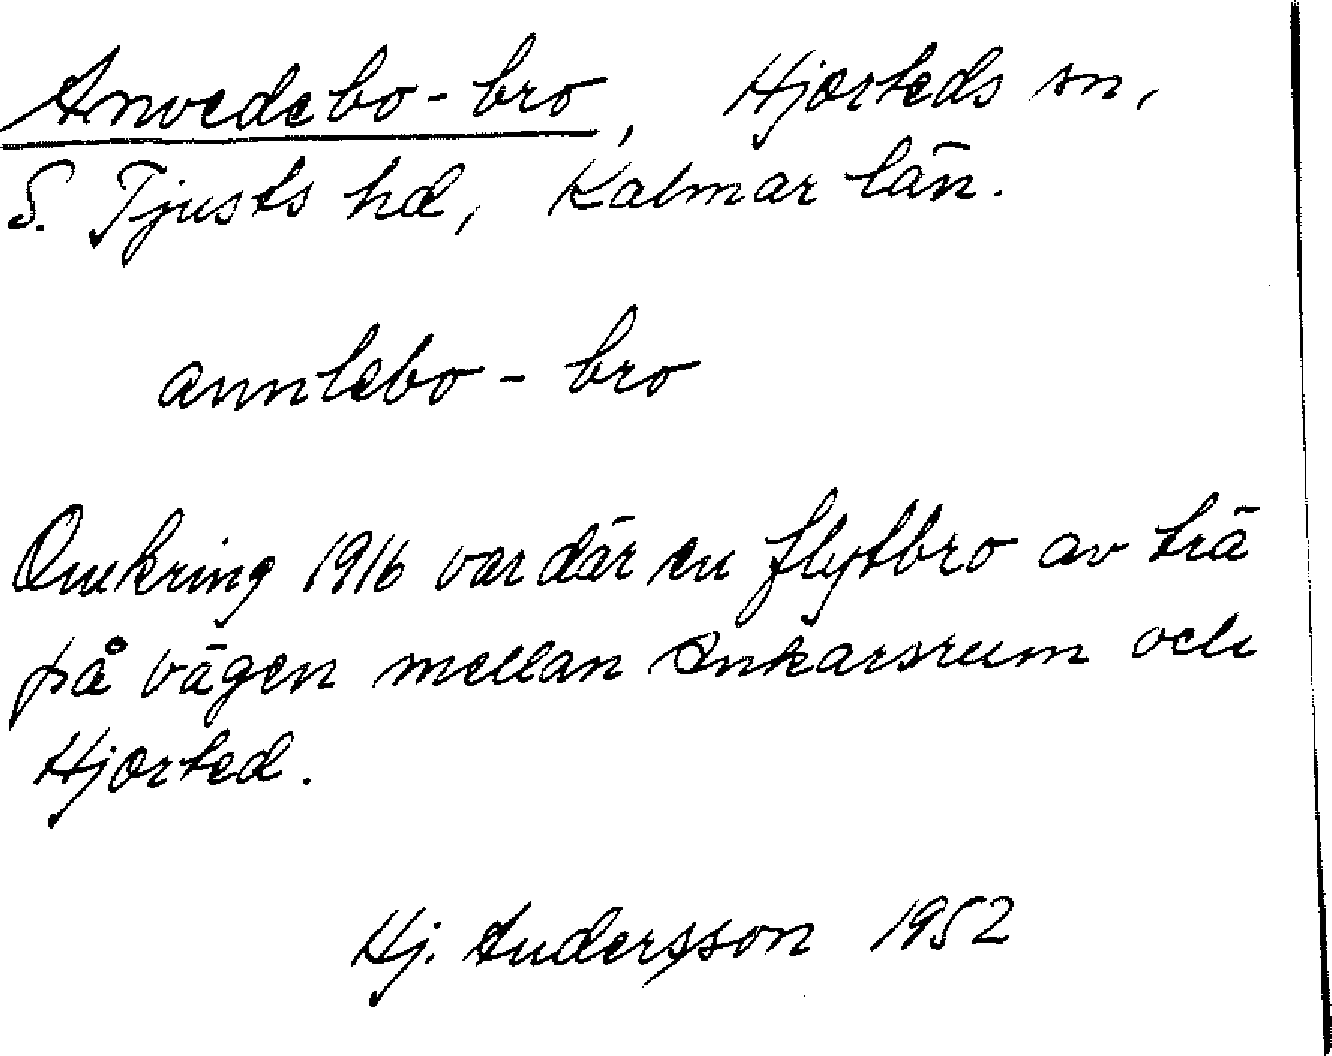 Anvedebo-bro, Hjorteds sn,
S. Tjusts hd, Kalmar län.
annlebo - bro
Omkring 1916 var där en flytbro av trä
på vägen mellan Ankarsrum och
Hjorted.
Hj. Andersson 1952